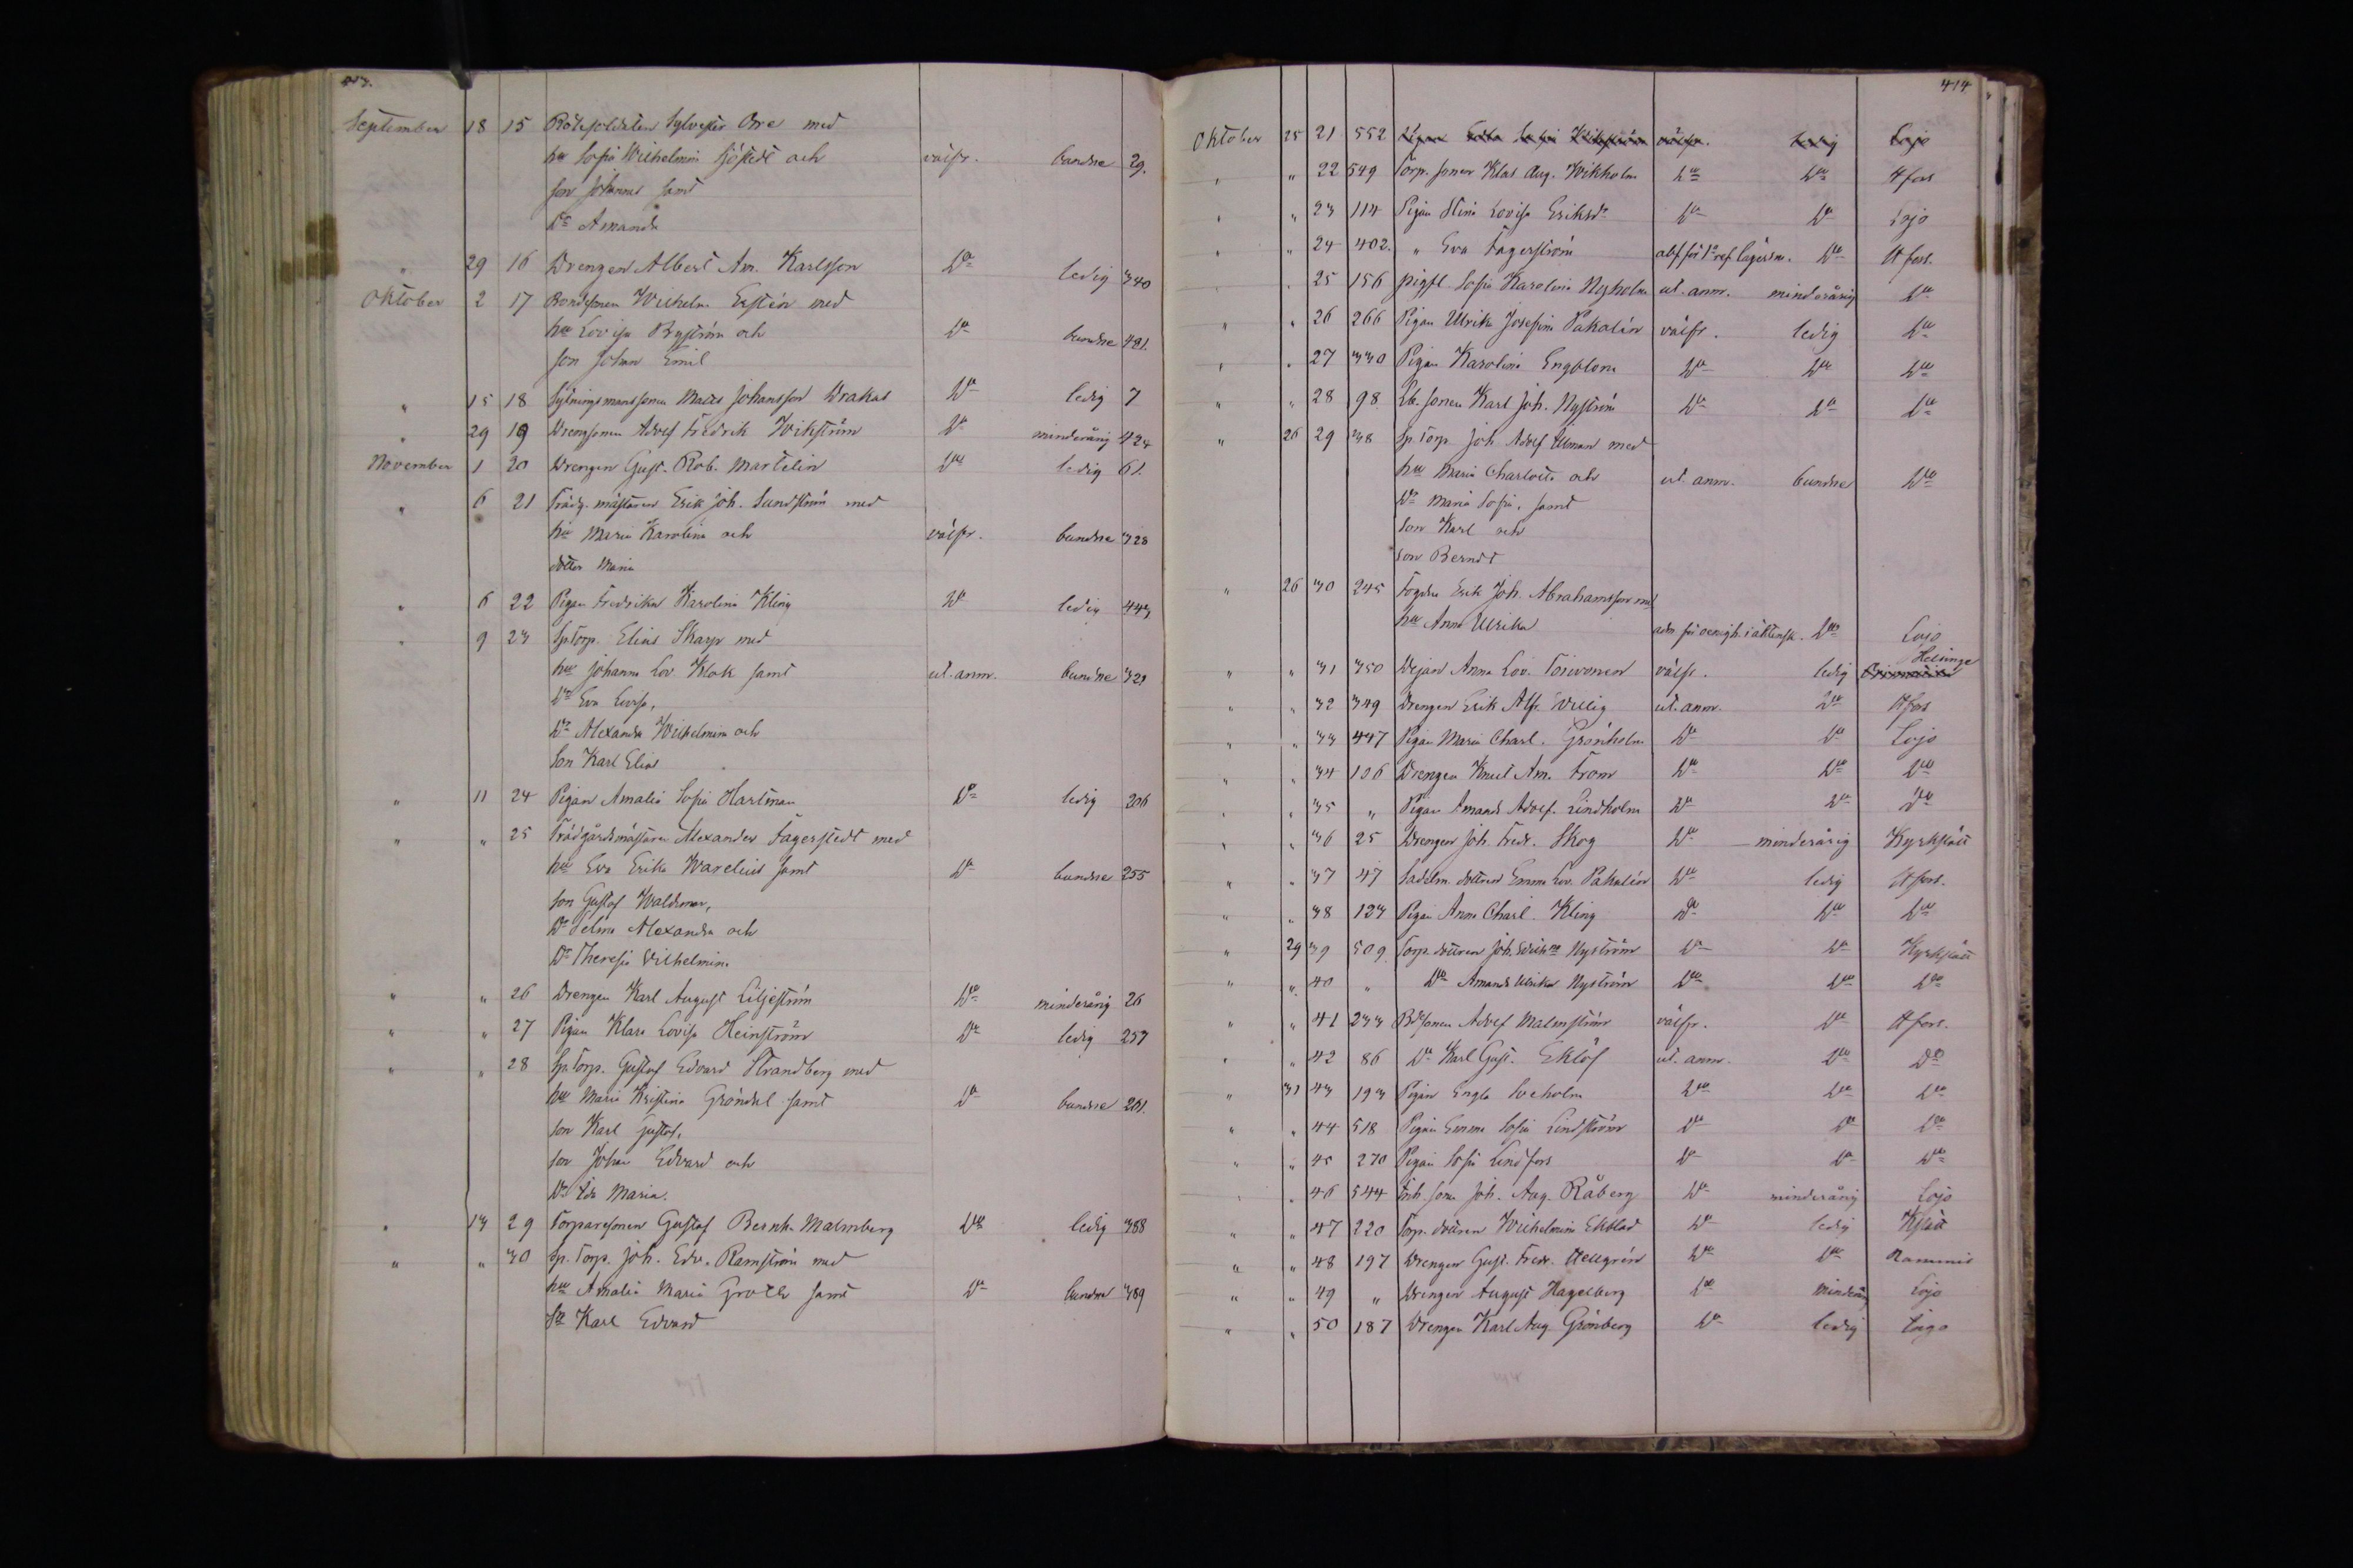 September 18 15 Rotesoldaten Sylvester Orre med
hu Sofia Wilhelmina Sjöstedt och välfr. bundne 29.
son Johannes samt
Dr Amanda
" 29 16 Drengen Albert Am. Karlsson Do ledig 340
Oktober 2 17 Bondesonen Wilhelm Ersteén med
hu Lovisa Byström och Do bundne 481.
son Johan Emil
" 15 18 Sytningsmanssonen Matts Johansson Drakas Do ledig 7
" 29 19 Drengsonen Adolf Fredrik Wikström Do minderårig 424
November 1 20 Drengen Gust. Rob. Martelin Do ledig 61.
" 6 21 Trädg. mästaren Erik Joh. Sundström med
hu Maria Karolina och välfr. bundne 328
dotter Maria
" 6 22 Pigan Fredrika Karolina Kling Do ledig 443
" 9 23 Sp.Torp. Elias Skarp med
hu Johanna Lov. Klok samt ut. anm. bundne 321
Dr Eva Lovisa,
Dr Alexandra Wilhelmina och
Son Karl Elias
" 11 24 Pigan Amalia Sofia Hartman Do ledig 206
" " 25 Trädgårdsmästaren Alexander Fagerstedt med
hu Eva Erika Warelius samt Do bundne 255
son Gustaf Waldemar,
Dr Selma Alexandra och
Dr Theresia Wilhelmina
" " 26 Drengen Karl August Liljeström Do minderårig 26
" " 27 Pigan Klara Lovisa Heinström Do ledig 257
" " 28 Sp.Torp. Gustaf Edvard Strandberg med
hu Maria Kristina Gröndal samt Do bundne 201.
son Karl Gustaf,
son Johan Edvard och
Dr Ida Maria.
" 13 29 Torparesonen Gustaf Bernh. Malmberg Do ledig 388
" " 30 Sp. Torp. Joh. Edv. Ramström med
hu Amalia Maria Groth samt Do bundne 389
Sn Karl Edvard
414
Oktober 25 21 552 Pigan Edla Sofia Wikström välfr. ledig Lojo
" " 22 549 Torp. sonen Klas Aug. Wikholm Do Do Hfors
" " 23 114 Pigan Stina Lovisa Eriksdr Do Do Lojo
" " 24 402. " Eva Fagerström Do Hfors.
" " 25 156 pigfl. Sofia Karolina Nyholm ut. anm. minderårig Do
" " 26 266 Pigan Ulrika Josefina Pakalén välfr. ledig Do
" " 27 330 Pigan Karolina Engblom Do Do Do
" " 28 98 sonen Karl Joh. Nyström Do Do Do
" 26 29 38 Sp Torp. Joh. Adolf Ulman med
hu Maria Charlotta och ut. anm. bundne Do
Dr Maria Sofia, samt
son Karl och
son Berndt
" 26 30 245 Fogden Erik Joh. Abrahamsson md
hu Anna Ulrika Do Lojo
" " 31 350 Dejan Anna Lov. Toivonen välfr. ledig Helsinge
" " 32 349 Drengen Erik Alfr. Willig ut. anm. Do Hfors
" " 33 447 Pigan Maria Charl. Grönholm Do Do Lojo
" " 34 106 Drengen Knut Am. From Do Do Do
" " 35 " Pigan Amanda Adolf. Lindholm Do Do Do
" " 36 25 Drengen Joh. Fredr. Skog Do minderårig Kyrkslätt
" " 37 47 Sadelm. dottren Emma Lov. Pakalén Do ledig Hfors.
" " 38 123 Pigan Anna Charl. Kling Do Do Do
" 29 39 509 Torp. dottren Joh. Wilhna Nyström Do Do Kyrkslätt
" " 40 " Do Amanda Ulrika Nyström Do Do Do
" " 41 233 Bdsonen Adolf Malmström välfr. Do Hfors.
" " 42 86 Do Karl Gust. Eklöf ut. anm. Do Do
" 31 43 193 Pigan Engla Soeholm Do Do Do
" " 44 518 Pigan Emma Sofia Lindström Do Do Do
" " 45 270 Pigan Sofia Lindfors Do Do Do
" " 46 544 Inh. sonen Joh. Aug. Råberg Do minderårig Lojo
" " 47 220 Torp. dottren Wilhelmina Ekblad Do ledig Kslätt
" " 48 197 Drengen Gust. Fredr. Hellgrén Do Do
" " 49 " Drengen August Hagelberg Do minderårig Lojo
" " 50 187 Drengen Karl Aug. Grönberg Do ledig Ingo